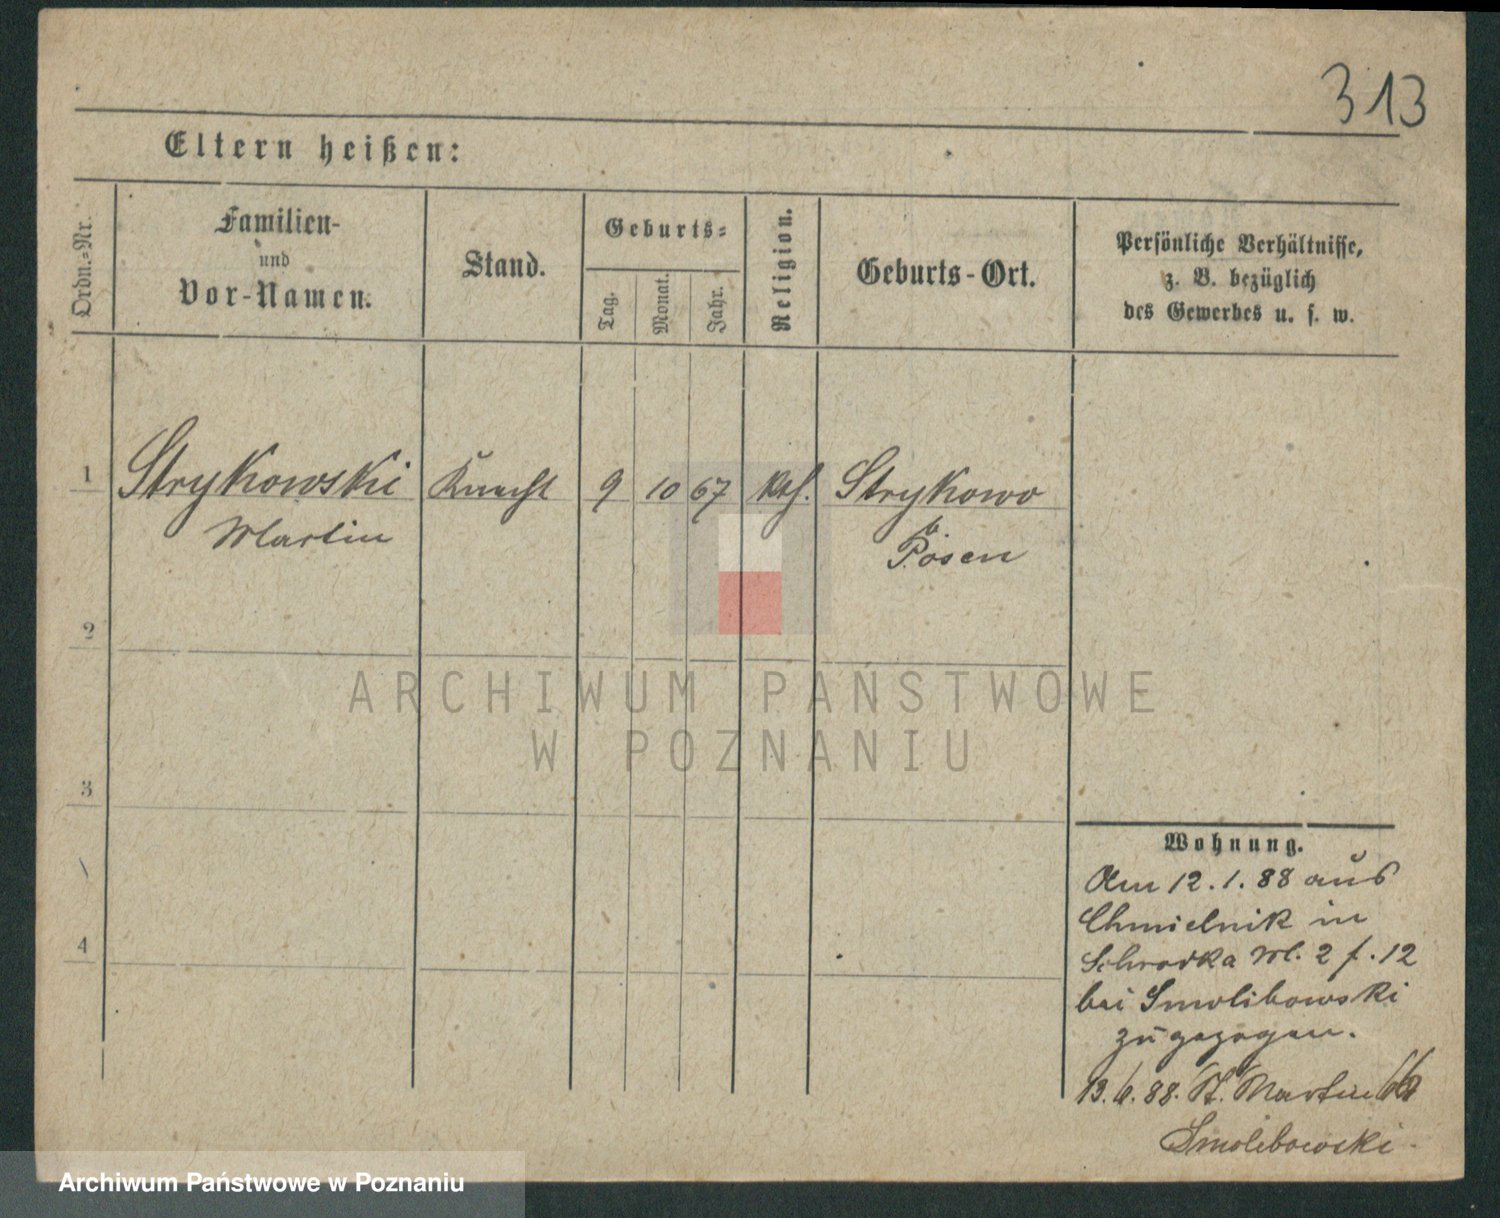 313
Eltern heißen:
Ordn.-Nr.
Familien-
und
Vor-Namen.
Stand.
Geburts-
Tag.
Monat.
Jahr.
Religion.
Geburts-Ort.
Persönliche Verhältnisse,
z. B. bezüglich
des Gewerbes u. s. w.
1 Strykowski Knecht 9 10 67 kth. Strykowo
Martin
b Posen
2
ARCHIWUM PAŃSTWOWE
W POZNANIU
3
4
Wohnung.
Am 12.1.88 aus
Chmielnik in
Schrodka No. 2 f. 12
bei Smolibowski
zugezogen.
13. 6. 88. St. Martin
Smolibowski
Archiwum Państwowe w Poznaniu